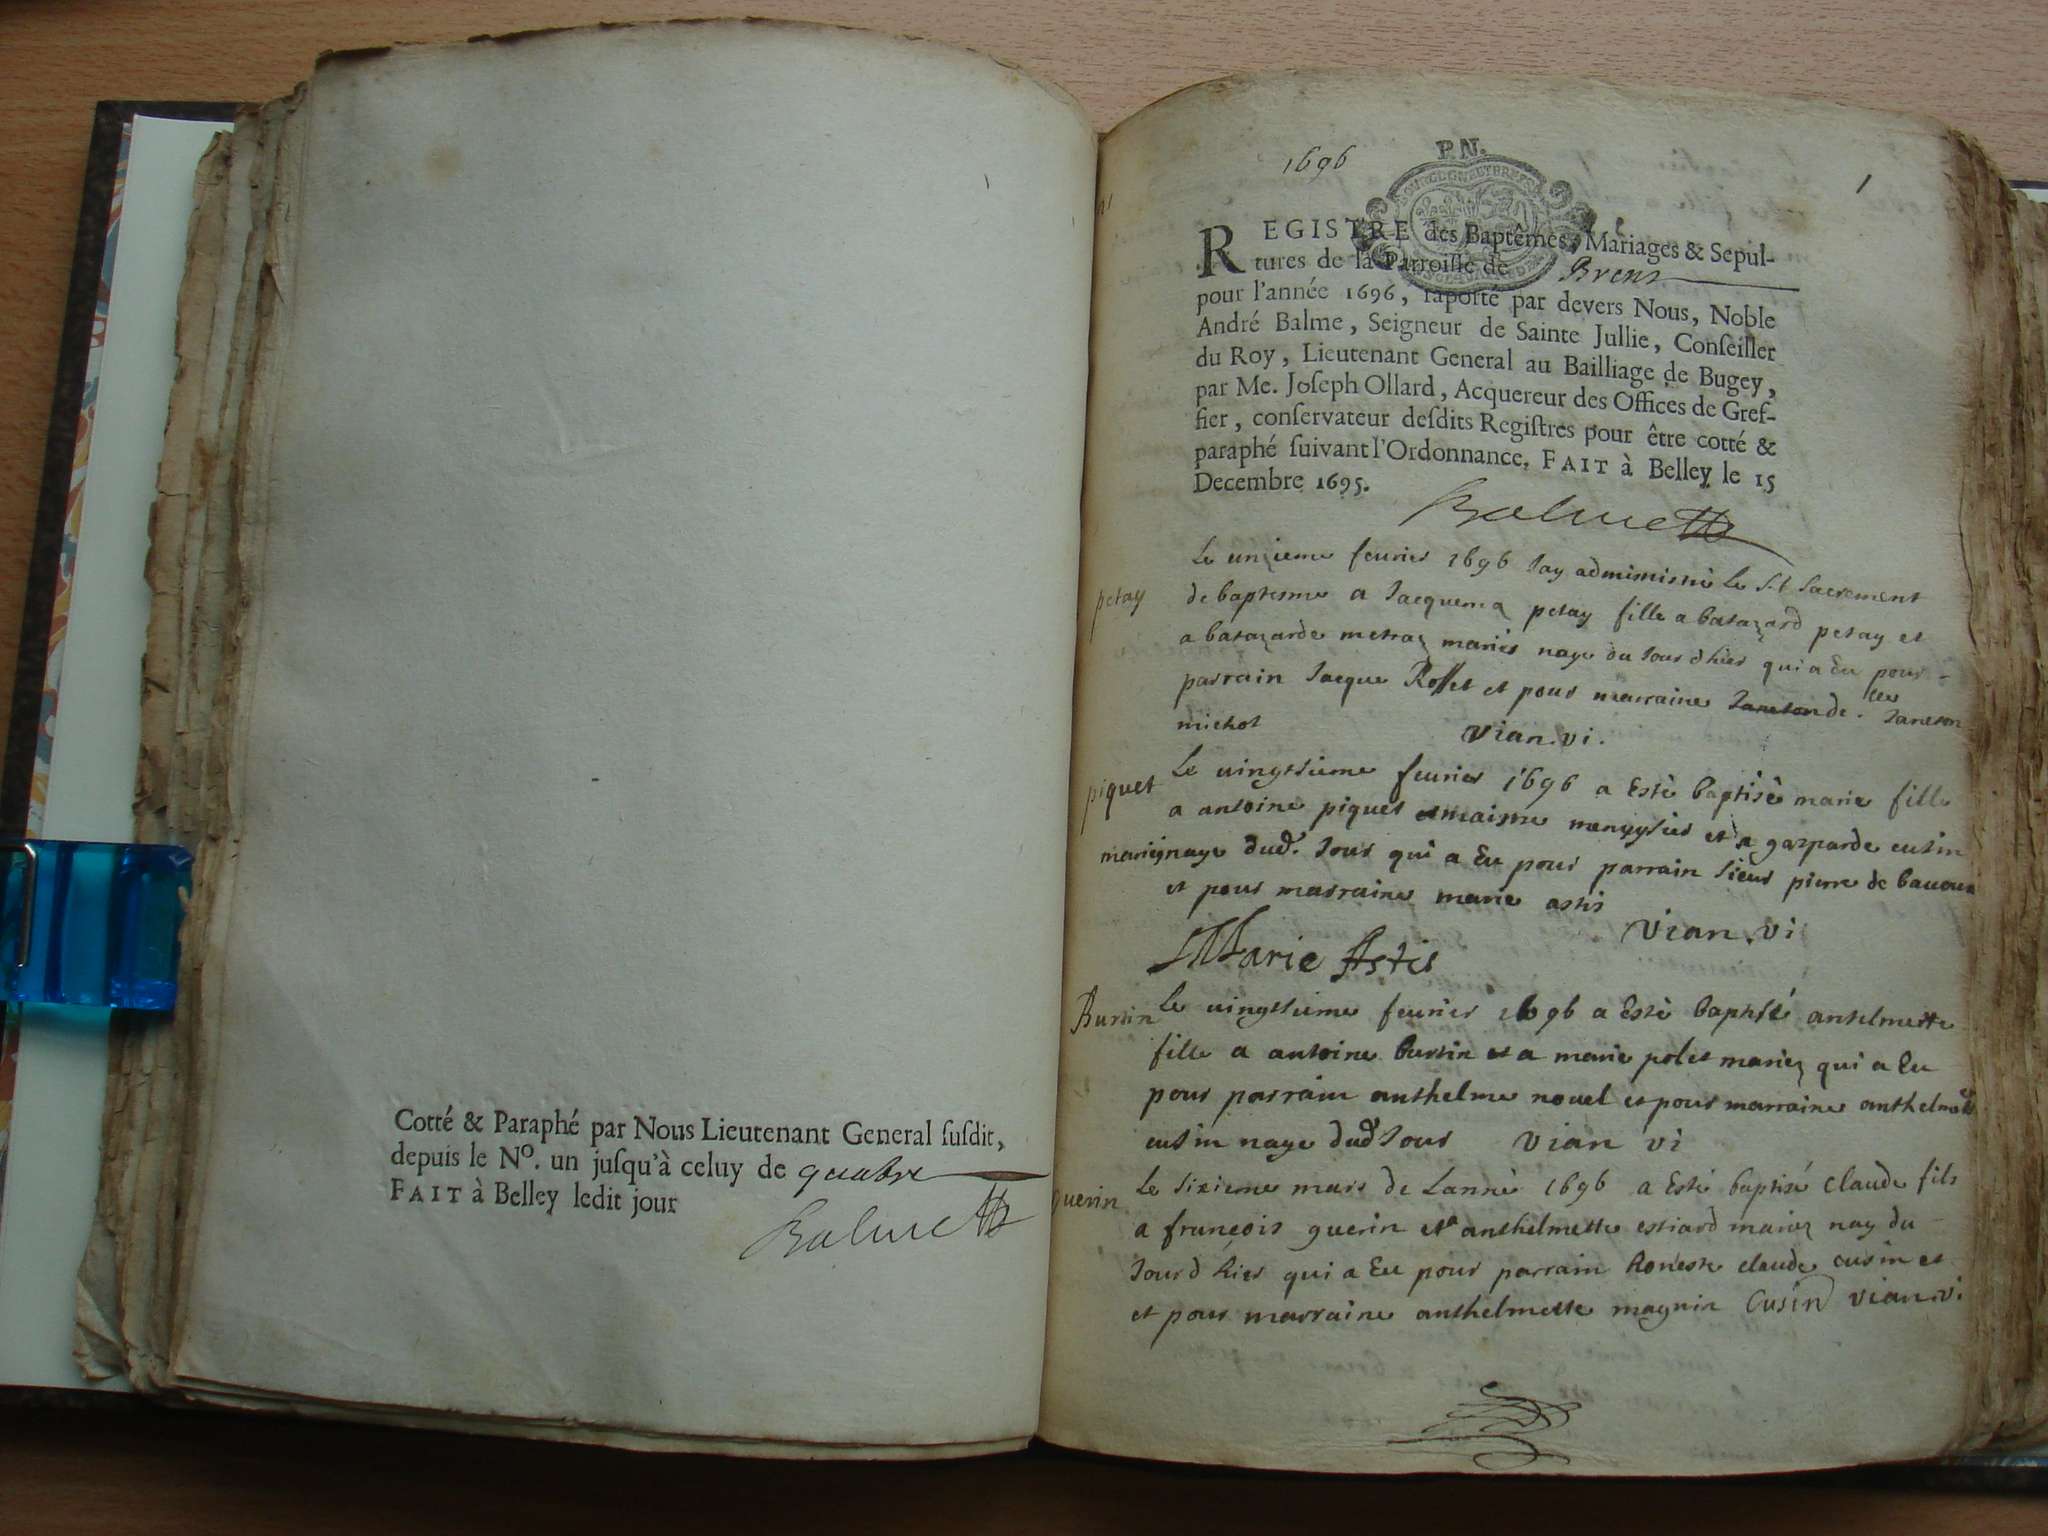 Cotté & Paraphé par Nous Lieutenant General suſdit,
depuis le Nº. un juſqu'à celuy de quatre
FAIT à Belley ledit jour
Balme
1696
P.N.
1
REGISTRE des Baptêmes, Mariages & Sepul-
tures de la Parroiſſe de Brens
pour l'année 1696, raporté par devers Nous, Noble
André Balme, Seigneur de Sainte Jullie, Conſeiller
du Roy, Lieutenant General au Bailliage de Bugey,
par Me. Joſeph Ollard, Acquereur des Offices de Gref-
fier, conſervateur deſdits Regiſtres pour être cotté &
paraphé ſuivant l'Ordonnance. FAIT à Belley le 15
Decembre 1695.
Balme
petay
Le unzieme feurier 1696 Jay administré le S.t Sacrement
de baptesme a Jacquema petay fille a batazard petay et
a batazarde metraz mariés naye du Jourdhier qui a Eu pour
parrain Jacque Rosset et pour marraine Janeton
michot vian. vi.
piquet
Le uingtsieme feurier 1696 a Estè baptisè marie fille
a antoine piquet et a gasparde cusin
naye dud. Jour qui a Eu pour parrain Sieur pierre de
et pour marraine marie astis
vian. vi
Marie Astis
Burtin
Le uingtsieme feurier 1696 a Estè baptisé antelmette
fille a antoine burtin et a marie polet mariez qui a Eu
pour parrain anthelme nouel et pour marraine anthelmette
cusin naye dud Jour vian vi
guerin
Le Sixieme mars de Lannè 1696 a Estè baptisé Claude fils
a françois guerin et a anthelmette estiard mariez nay du
Jourd hier qui a Eu pour parrain honeste claude cusin et
et pour marraine anthelmette magnin Cusin vian. vi